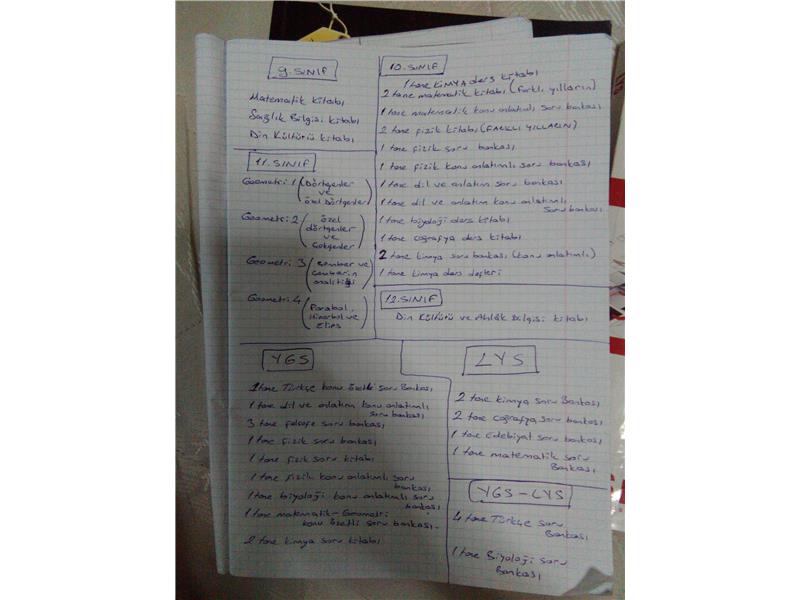 9. SINIF
Matematik kitabı
Sağlık Bilgisi kitabı
Din Kültürü kitabı
10. SINIF
1 tane KİMYA ders kitabı
2 tane matematik kitabı (farklı yılların)
1 tane matematik konu anlatımlı soru bankası
2 tane fizik kitabı (FARKLI YILLARIN)
1 tane fizik soru bankası
1 tane fizik konu anlatımlı soru bankası
1 tane dil ve anlatım soru bankası
1 tane dil ve anlatım konu anlatımlı
soru bankası
1 tane biyoloji ders kitabı
1 tane coğrafya ders kitabı
2 tane kimya soru bankası (konu anlatımlı)
1 tane kimya ders defteri
11. SINIF
Geometri 1 (Dörtgenler
ve
özel Dörtgenler)
Geometri 2 (özel
dörtgenler
ve
Çokgenler)
Geometri 3 (çember ve
çemberin
analitiği)
Geometri 4 (Parabol,
Hiperbol ve
Elips)
12. SINIF
Din Kültürü ve Ahlâk Bilgisi kitabı
YGS
1 tane Türkçe konu özetli soru Bankası
1 tane dil ve anlatım konu anlatımlı
soru bankası
3 tane felsefe soru bankası
1 tane fizik soru bankası
1 tane fizik soru kitabı
1 tane fizik konu anlatımlı soru
bankası
1 tane biyoloji konu anlatımlı soru
bankası
1 tane matematik-Geometri
konu özetli soru bankası.
2 tane kimya soru kitabı
LYS
2 tane kimya soru Bankası
2 tane coğrafya soru bankası
1 tane Edebiyat soru bankası
1 tane matematik soru
Bankası
YGS-LYS
4 tane Türkçe soru
Bankası
1 tane Biyoloji soru
Bankası